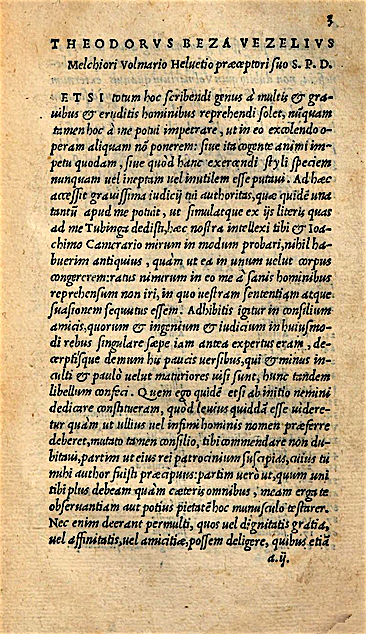 3
THEODORVS BEZA VEZELIVS
Melchiori Volmario Helvetio præceptori suo S. P. D.
ETSI totum hoc scribendi genus à multis & gra-
uibus & eruditis hominibus reprehendi solet, nūquam
tamen hoc à me potui impetrare, ut in eo excolendo o-
peram aliquam nō ponerem: siue ita cogente animi im-
petu quodam, siue quòd hanc exercendi styli speciem
nunquam uel ineptam uel inutilem esse putaui. Ad hæc
accessit grauissima iudicij tui authoritas, quæ quidē una
tantū apud me potuit, ut simulatque ex ijs literis quas
ad me Tubinga dedisti, hæc nostra intellexi tibi & Ioa-
chimo Camerario mirum in modum probari, nihil ha-
buerim antiquius, quàm ut ea in unum uelut corpus
congererem: ratus nimirum in eo me à sanis hominibus
reprehensum non iri, in quo uestram sententiam atque
suasionem sequutus essem. Adhibitis igitur in consilium
amicis, quorum & ingenium & iudicium in huiusmo-
di rebus singulare sæpe iam antea expertus eram, de-
cerptisque demum his paucis uersibus, qui & minus in-
culti & paulò uelut maturiores uisi sunt, hunc tandem
libellum confeci. Quem ego quidē etsi ab initio nemini
dedicare constitueram, quòd leuius quiddā esse uidere-
tur quàm ut ullius uel infimi hominis nomen præferre
deberet, mutato tamen consilio, tibi commendare non du-
bitaui, partim ut eius rei patrocinium suscipias, cuius tu
mihi author fuisti præcipuus: partim uerò ut, quum uni
tibi plus debeam quàm cæteris omnibus, meam erga te
obseruantiam aut potius pietatē hoc munusculo testarer.
Nec enim deerant permulti, quos uel dignitatis gratia,
uel affinitatis, uel amicitiæ, possem deligere, quibus etiā
a.ij.